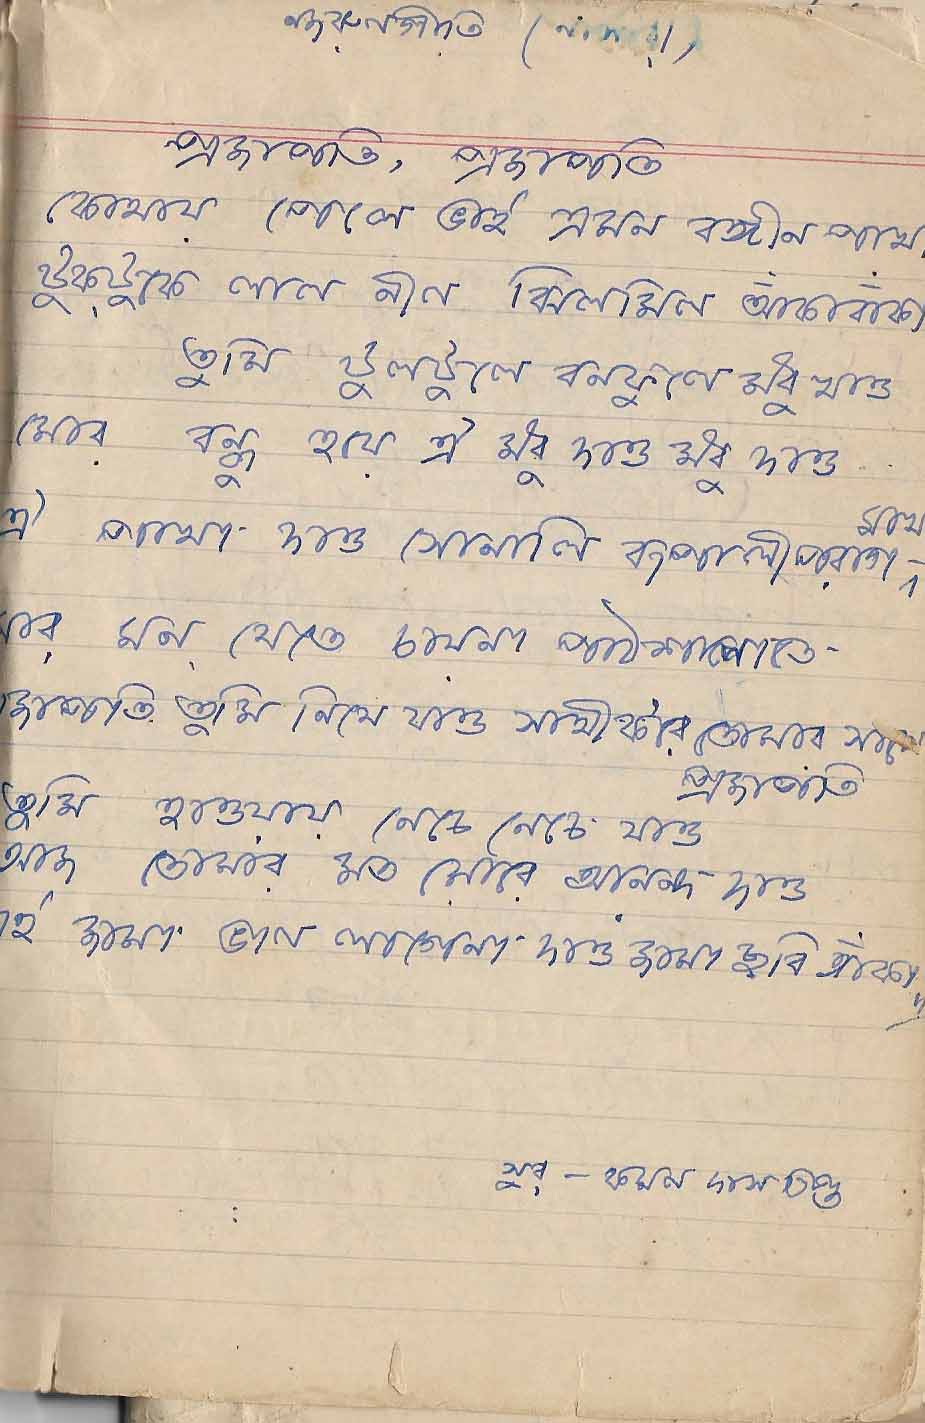 নজরুলগীতি
প্রজাপতি, প্রজাপতি
কোথায় পেলে ভাই এমন রঙ্গীন পাখা
টুকটুকে লাল নীল ঝিলমিল আঁকাবাঁকা
তুমি টুলটুলে বনফুলে মধু খাও
মোর বন্ধু হয়ে ঐ মধু দাও মধু দাও
ঐ পাখা দাও সোনালি রূপালী পরাগ মাখা
মন যেতে চায়না পাঠশালাতে
তুমি নিয়ে যাও সাথী করে তোমার সাথে
প্রজাপতি
তুমি হাওয়ায় নেচে নেচে যাও
আজ তোমার মত মোরে আনন্দ দাও
জামা ভাল লাগেনা দাও জামা ছবি আঁকা
সুর – কমল দাসগুপ্ত